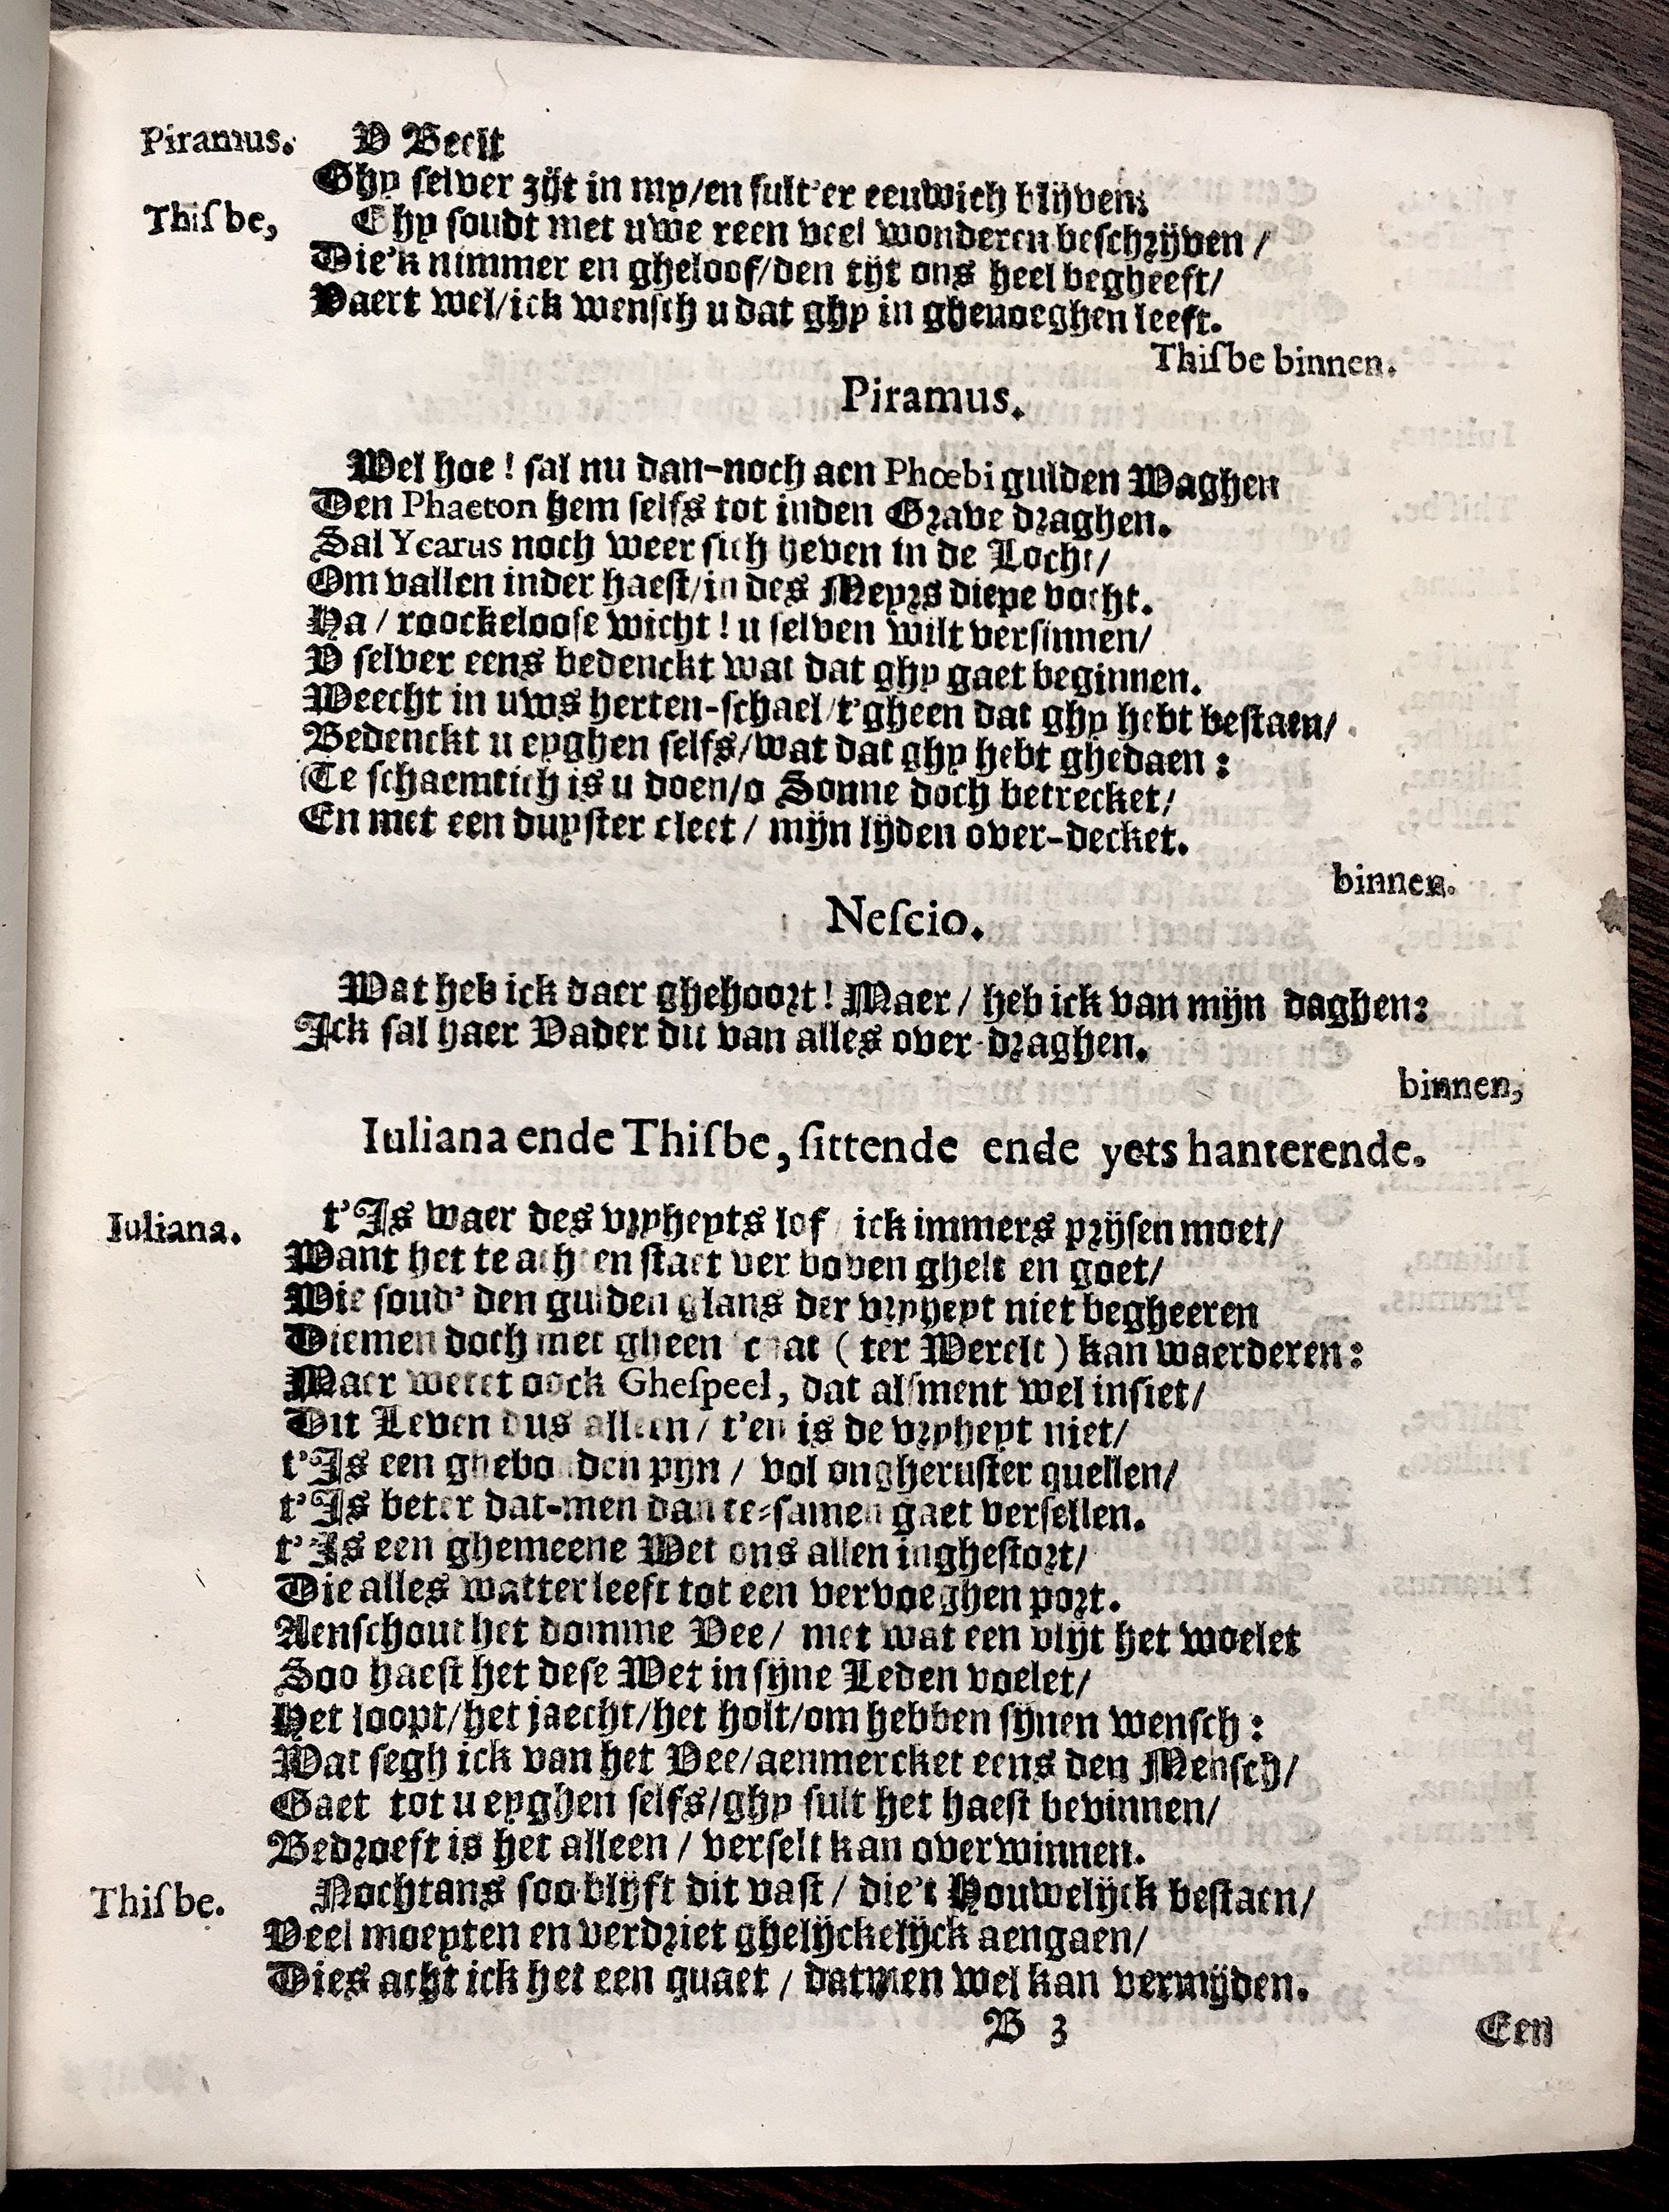 Piramus. V Beelt
Ghy selver zijt in my/en sult'er eeuwich blijven;
Thisbe, Ghy soudt met uwe reen veel wonderen beschrijven /
Die'k nimmer en gheloof/den tijt ons heel begheeft/
Vaert wel/ick wensch u dat ghy in ghenoeghen leeft.
Thisbe binnen.
Piramus.
Wel hoe! sal nu dan-noch aen Phœbi gulden Waghen
Den Phaeton hem selfs tot inden Grave draghen.
Sal Ycarus noch weer sich heven in de Locht/
Om vallen inder haest/in des Meyrs diepe vocht.
Ha / roockeloose wicht! u selven wilt versinnen/
V selver eens bedenckt wat dat ghy gaet beginnen.
Weecht in uws herten-schael/t'gheen dat ghy hebt bestaen/
Bedenckt u eyghen selfs/wat dat ghy hebt ghedaen:
Te schaemtich is u doen/o Sonne doch betrecket/
En met een duyster cleet / mijn lijden over-decket.
binnen.
Nescio.
Wat heb ick daer ghehoort! Maer / heb ick van mijn daghen:
Ick sal haer Vader dit van alles over-draghen.
binnen,
Iuliana ende Thisbe, sittende ende yets hanterende.
Iuliana. t'Is waer des vryheyts lof / ick immers prijsen moet/
Want het te achten staet ver boven ghelt en goet/
Wie soud' den gulden glans der vryheyt niet begheeren
Diemen doch met gheen (ter Werelt) kan waerderen:
Maer wetet oock Ghespeel, dat alsment wel insiet/
Dit Leven dus alleen / t'en is de vryheyt niet/
t'Is een ghebonden pyn / vol ongheruster quellen/
t'Is beter dat-men dan te-samen gaet versellen.
t'Is een ghemeene Wet ons allen inghestort/
Die alles watter leeft tot een vervoeghen port.
Aenschout het domme Vee / met wat een vlijt het woelet
Soo haest het dese Wet in sijne Leden voelet/
Het loopt/het jaecht/het holt/om hebben sijnen wensch:
Wat segh ick van het Vee/aenmercket eens den Mensch/
Gaet tot u eyghen selfs/ghy sult het haest bevinnen/
Bedroeft is het alleen / verselt kan overwinnen.
Thisbe. Nochtans soo blijft dit vast / die't Houwelijck bestaen/
Veel moeyten en verdriet ghelijckelijck aengaen/
Dies acht ick het een quaet / datmen wel kan vermijden.
B 3 Een